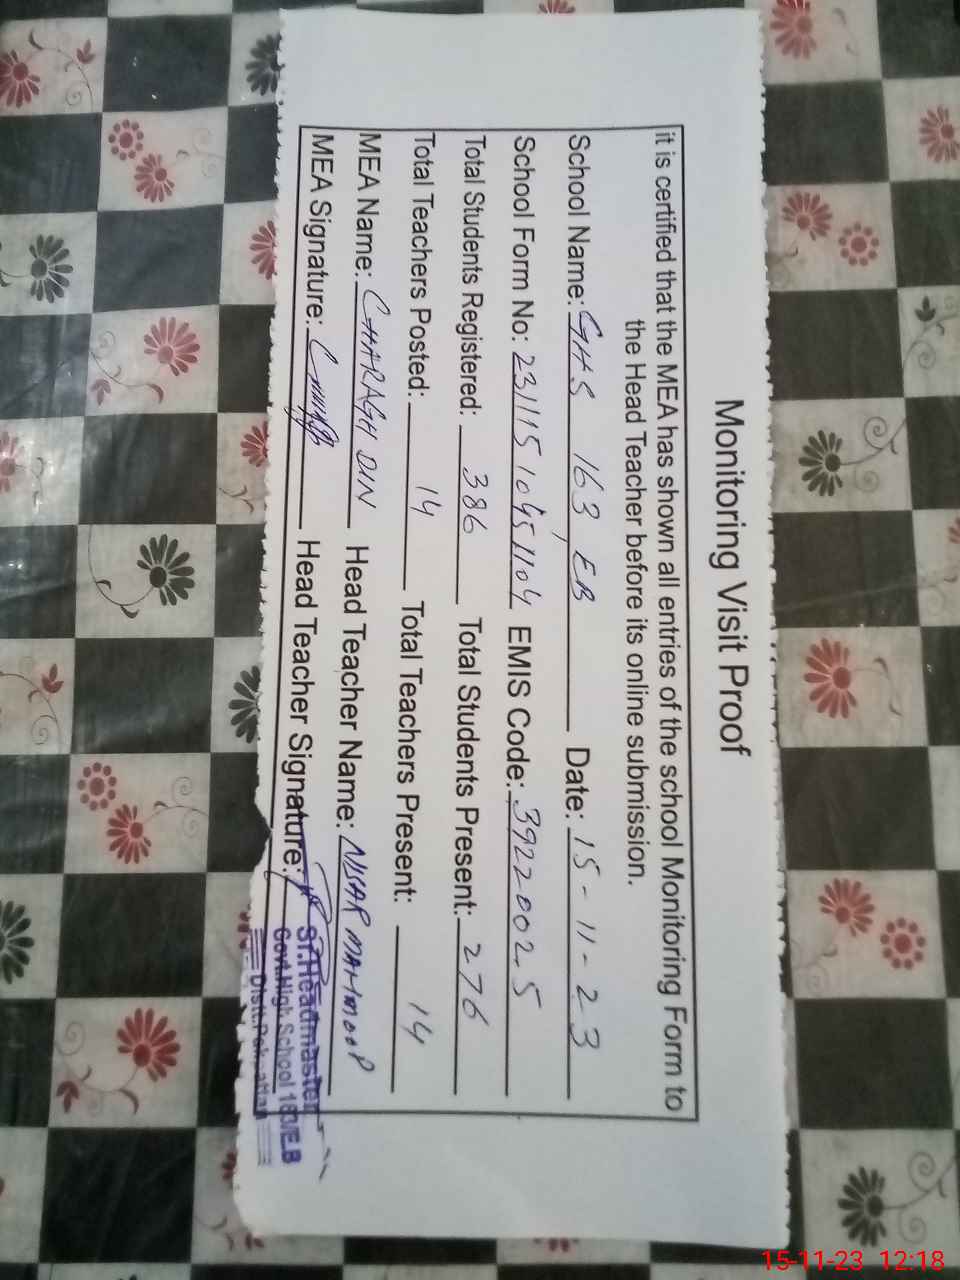 Monitoring Visit Proof
it is certified that the MEA has shown all entries of the school Monitoring Form to
the Head Teacher before its online submission.
School Name: GHS 163, EB Date: 15-11-23
School Form No: EMIS Code: 39220025
Total Students Registered: 386 Total Students Present: 276
Total Teachers Posted: 14 Total Teachers Present: 14
MEA Name: CHARAGH DIN Head Teacher Name: NISAR MAHMOOD
MEA Signature: Head Teacher Signature:
Sr. Headmaster
Govt. High School 163/E.B
Distt. Pakpattan
15-11-23 12:18